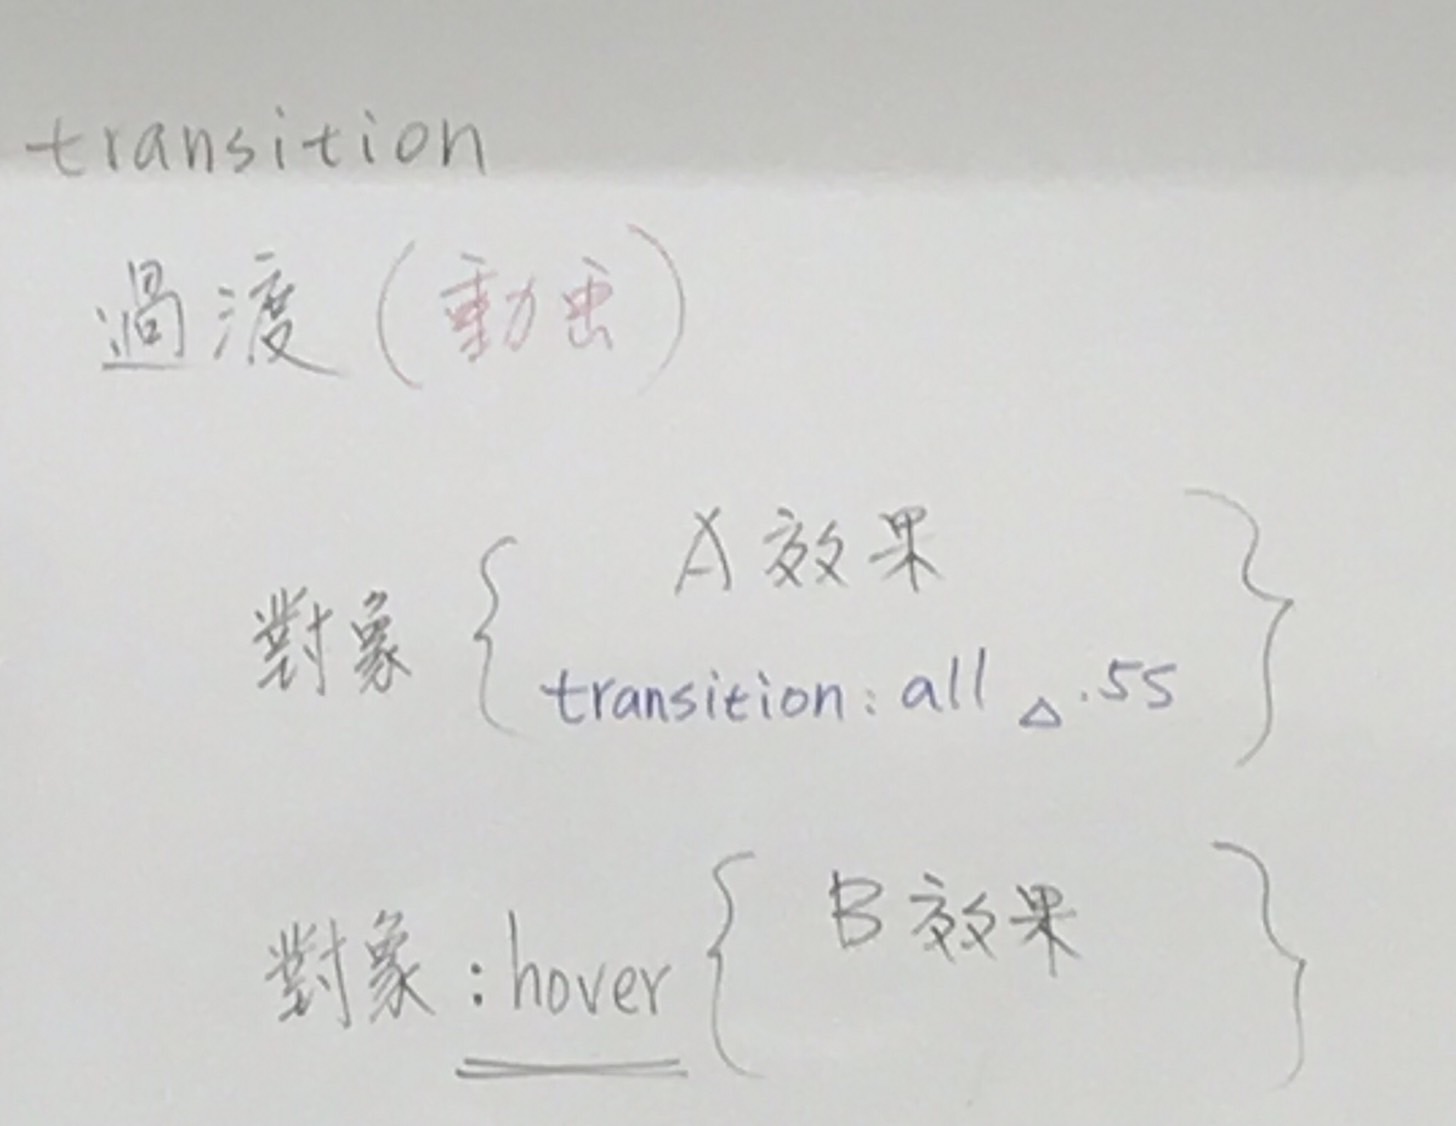 transition
過渡(動虫)
對象{ A效果
transition: all △ .5s }
對象:hover{ B效果 }